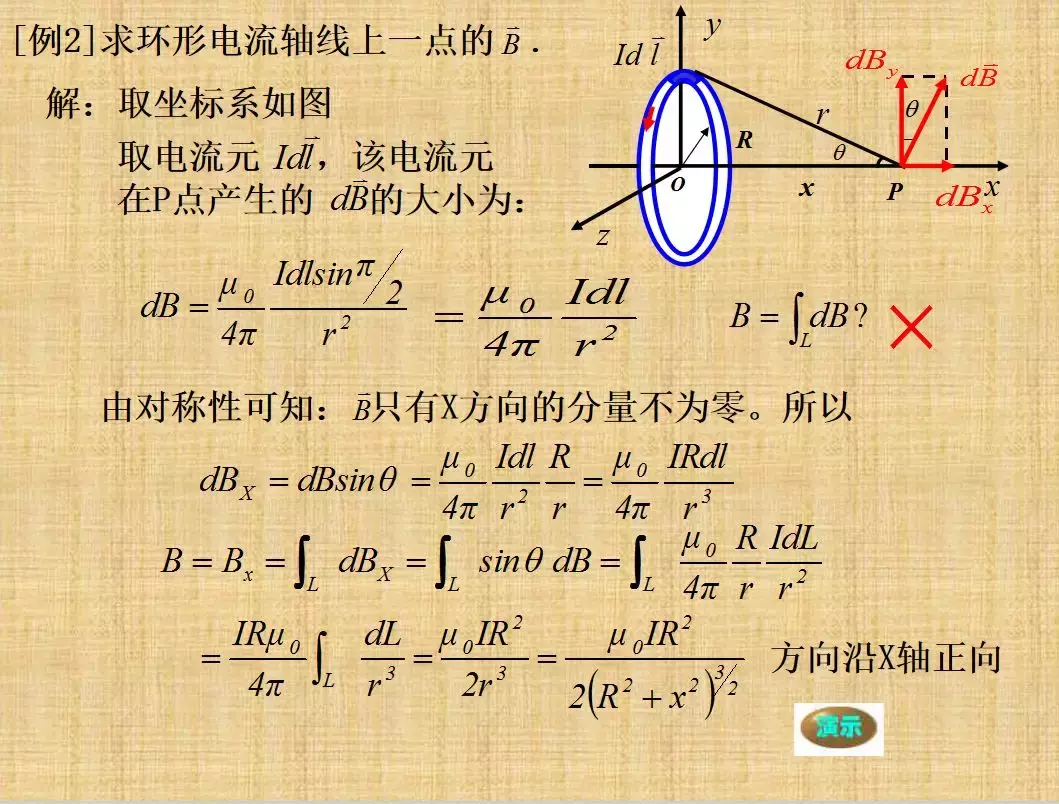 [例2]求环形电流轴线上一点的 $\vec{B}$ .
解：取坐标系如图
取电流元 $Id\vec{l}$，该电流元
在P点产生的 $d\vec{B}$的大小为：
y
$Id\,\vec{l}$
$dB_y$
$d\vec{B}$
θ
r
R
θ
o
x
P
$dB_x$
x
z
$dB = \frac{\mu_0}{4\pi} \frac{Idl\sin \pi/2}{r^2} = \frac{\mu_o}{4\pi} \frac{Idl}{r^2}$
$B = \int_L dB$ ? ×
由对称性可知：$\vec{B}$只有X方向的分量不为零。所以
$dB_X = dB\sin\theta = \frac{\mu_0}{4\pi} \frac{Idl}{r^2} \frac{R}{r} = \frac{\mu_0}{4\pi} \frac{IRdl}{r^3}$
$B = B_x = \int_L dB_X = \int_L \sin\theta\, dB = \int_L \frac{\mu_0}{4\pi} \frac{R}{r} \frac{IdL}{r^2}$
$= \frac{IR\mu_0}{4\pi} \int_L \frac{dL}{r^3} = \frac{\mu_0 IR^2}{2r^3} = \frac{\mu_0 IR^2}{2(R^2 + x^2)^{3/2}}$ 方向沿X轴正向
演示